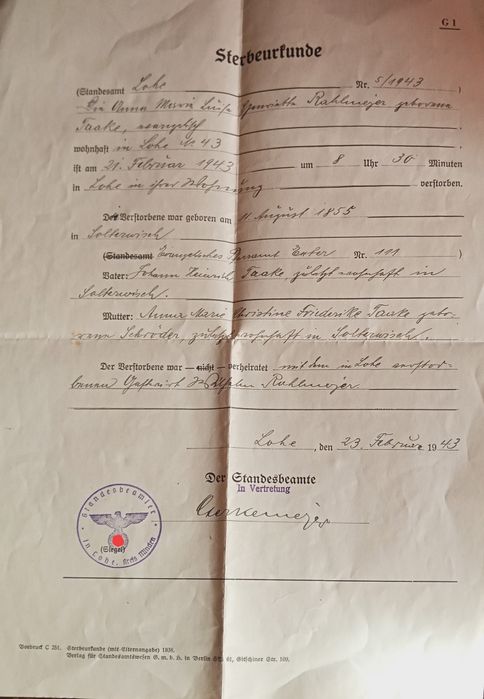 G 1
Sterbeurkunde
(Standesamt Lohe Nr. 5/1943)
Die Anna Marie Luise Henriette Rahlmejer geborene
Taake, evangelisch
wohnhaft in Lohe Nr. 43
ist am 21. Februar 1943 um 8 Uhr 30 Minuten
in Lohe in ihrer Wohnung verstorben.
Der Verstorbene war geboren am 11 August 1855
in Solterwisch
(Standesamt Evangelisches Nr. 111)
Vater: Johann Heinrich Taake, zuletzt wohnhaft in
Solterwisch.
Mutter: Anna Marie Christine Friederike Taake gebo-
rene Schröder, zuletzt wohnhaft in Solterwisch.
Der Verstorbene war nicht verheiratet mit dem in Lohe verstor-
benen Gastwirt Wilhelm Rahlmejer
Lohe, den 23. Februar 1943
Der Standesbeamte
In Vertretung
Standesbeamter
in Lohe, Kreis Minden
(Siegel)
Vordruck C 251. Sterbeurkunde (mit Elternangabe) 1938.
Verlag für Standesamtswesen G. m. b. H. in Berlin SW 61, Gitschiner Str. 109.